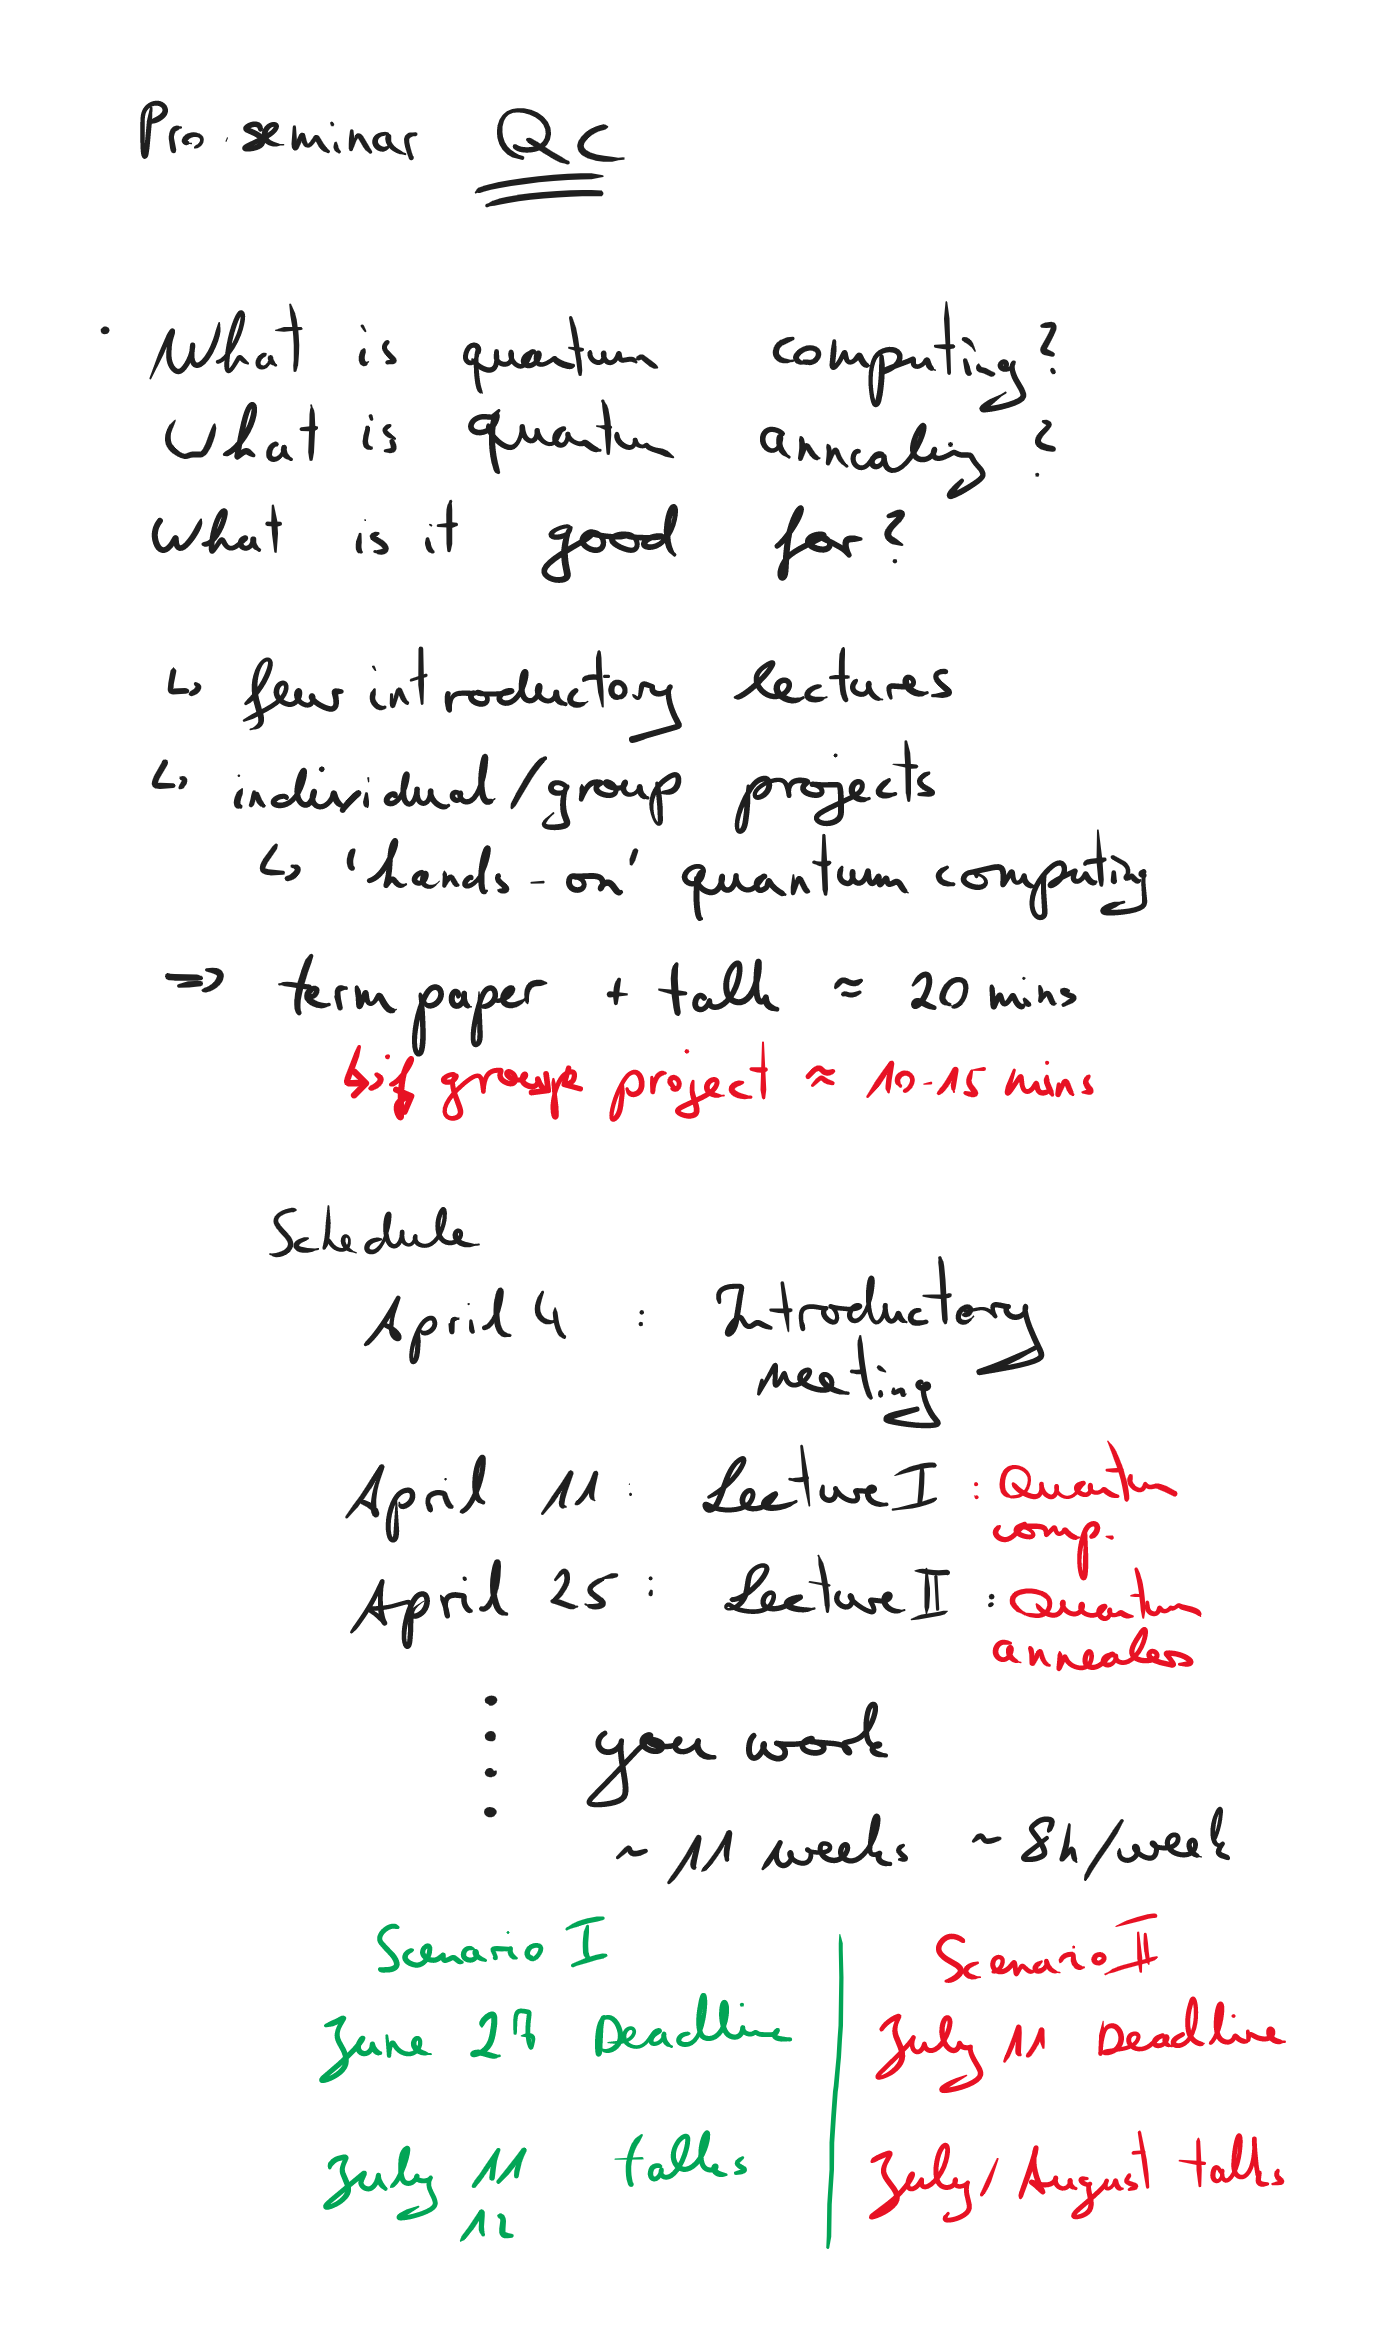 Pro-seminar QC
· What is quantum computing?
What is quantum annealing?
What is it good for?
↳ few introductory lectures
↳ individual/group projects
↳ 'hands-on' quantum computing
⇒ term paper + talk ≈ 20 mins
↳ if group project ≈ 10-15 mins
Schedule
April 4 : Introductory
meeting
April 11 : Lecture I : Quantum
comp.
April 25 : Lecture II : Quantum
annealers
⋮ you work
~ 11 weeks ~ 8h/week
Scenario I
June 27 Deadline
July 11 talks
12
Scenario II
July 11 Deadline
July/August talks